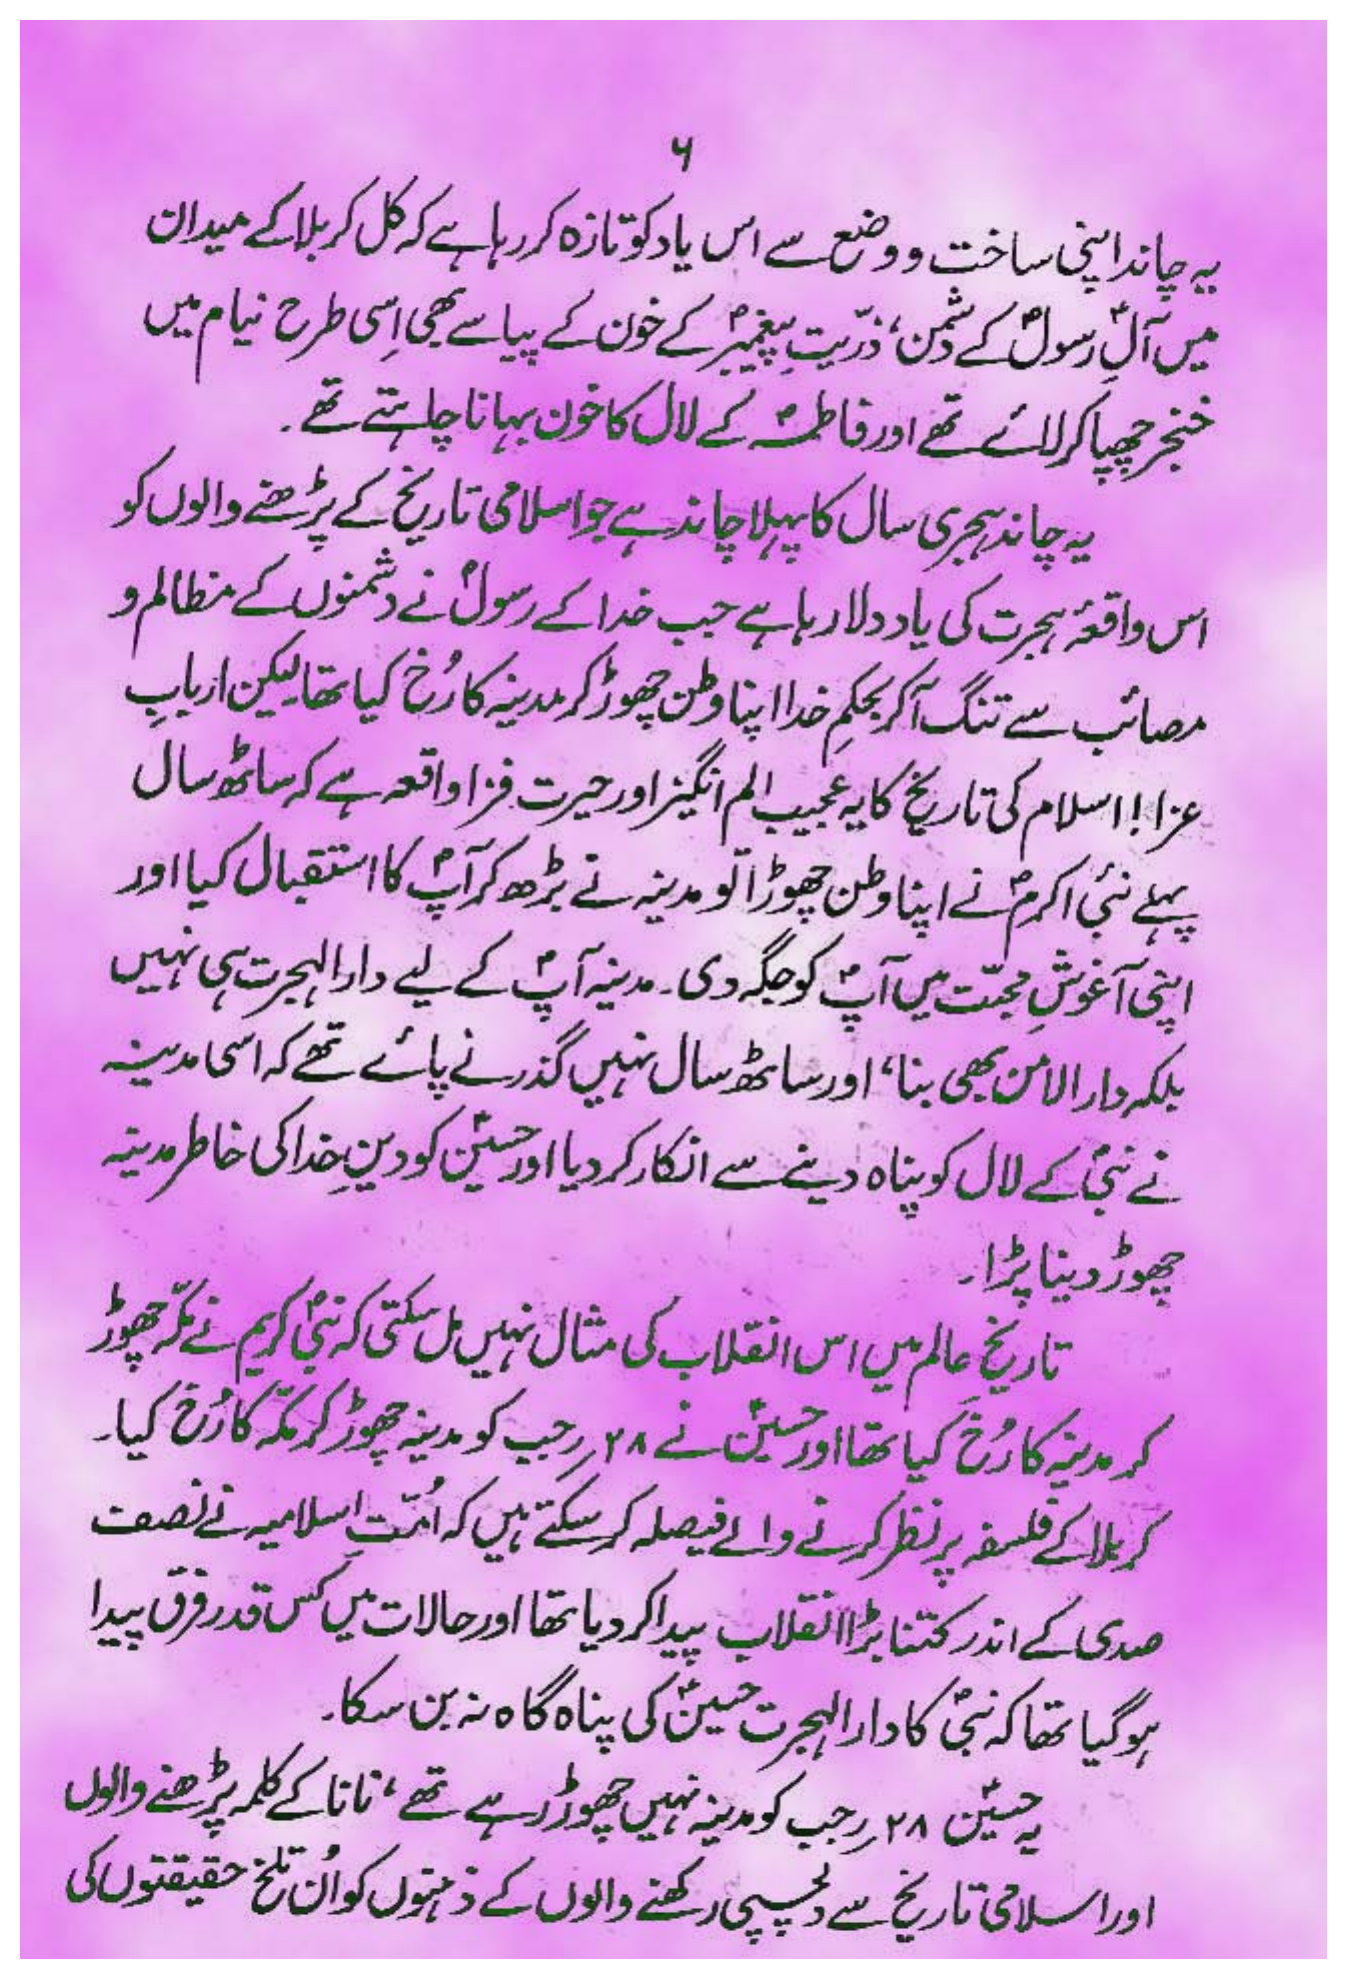 ۶
یہ چاند اپنی ساخت و وضع سے اس یاد کو تازہ کر رہا ہے کہ کل کربلا کے میدان
میں آلِ رسولؐ کے دشمن، ذرّیتِ پیغمبرؐ کے خون کے پیاسے بھی اِسی طرح نیام میں
خنجر چھپا کر لائے تھے اور فاطمہؑ کے لال کا خون بہانا چاہتے تھے۔
یہ چاند ہجری سال کا پہلا چاند ہے جو اسلامی تاریخ کے پڑھنے والوں کو
اس واقعۂ ہجرت کی یاد دلا رہا ہے جب خدا کے رسولؐ نے دشمنوں کے مظالم و
مصائب سے تنگ آکر بحکمِ خدا اپنا وطن چھوڑ کر مدینہ کا رُخ کیا تھا لیکن اربابِ
عزا! اسلام کی تاریخ کا یہ عجیب الم انگیز اور حیرت فزا واقعہ ہے کہ ساٹھ سال
پہلے نبیٔ اکرمؐ نے اپنا وطن چھوڑا تو مدینہ نے بڑھ کر آپؐ کا استقبال کیا اور
اپنی آغوشِ محبّت میں آپؐ کو جگہ دی۔ مدینہ آپؐ کے لیے دارالہجرت ہی نہیں
بلکہ دارالامن بھی بنا، اور ساٹھ سال نہیں گذرنے پائے تھے کہ اسی مدینہ
نے نبیؐ کے لال کو پناہ دینے سے انکار کر دیا اور حسینؑ کو دینِ خدا کی خاطر مدینہ
چھوڑ دینا پڑا۔
تاریخِ عالم میں اس انقلاب کی مثال نہیں مل سکتی کہ نبیؐ کریم نے مکّہ چھوڑ
کر مدینہ کا رُخ کیا تھا اور حسینؑ نے ۲۸؍ رجب کو مدینہ چھوڑ کر مکّہ کا رُخ کیا۔
کربلا کے فلسفہ پر نظر کرنے والے فیصلہ کر سکتے ہیں کہ اُمّتِ اسلامیہ نے نصف
صدی کے اندر کتنا بڑا انقلاب پیدا کر دیا تھا اور حالات میں کس قدر فرق پیدا
ہو گیا تھا کہ نبیؐ کا دارالہجرت حسینؑ کی پناہ گاہ نہ بن سکا۔
یہ حسینؑ ۲۸؍ رجب کو مدینہ نہیں چھوڑ رہے تھے، نانا کے کلمہ پڑھنے والوں
اور اسلامی تاریخ سے دلچسپی رکھنے والوں کے ذہنوں کو اُن تلخ حقیقتوں کی